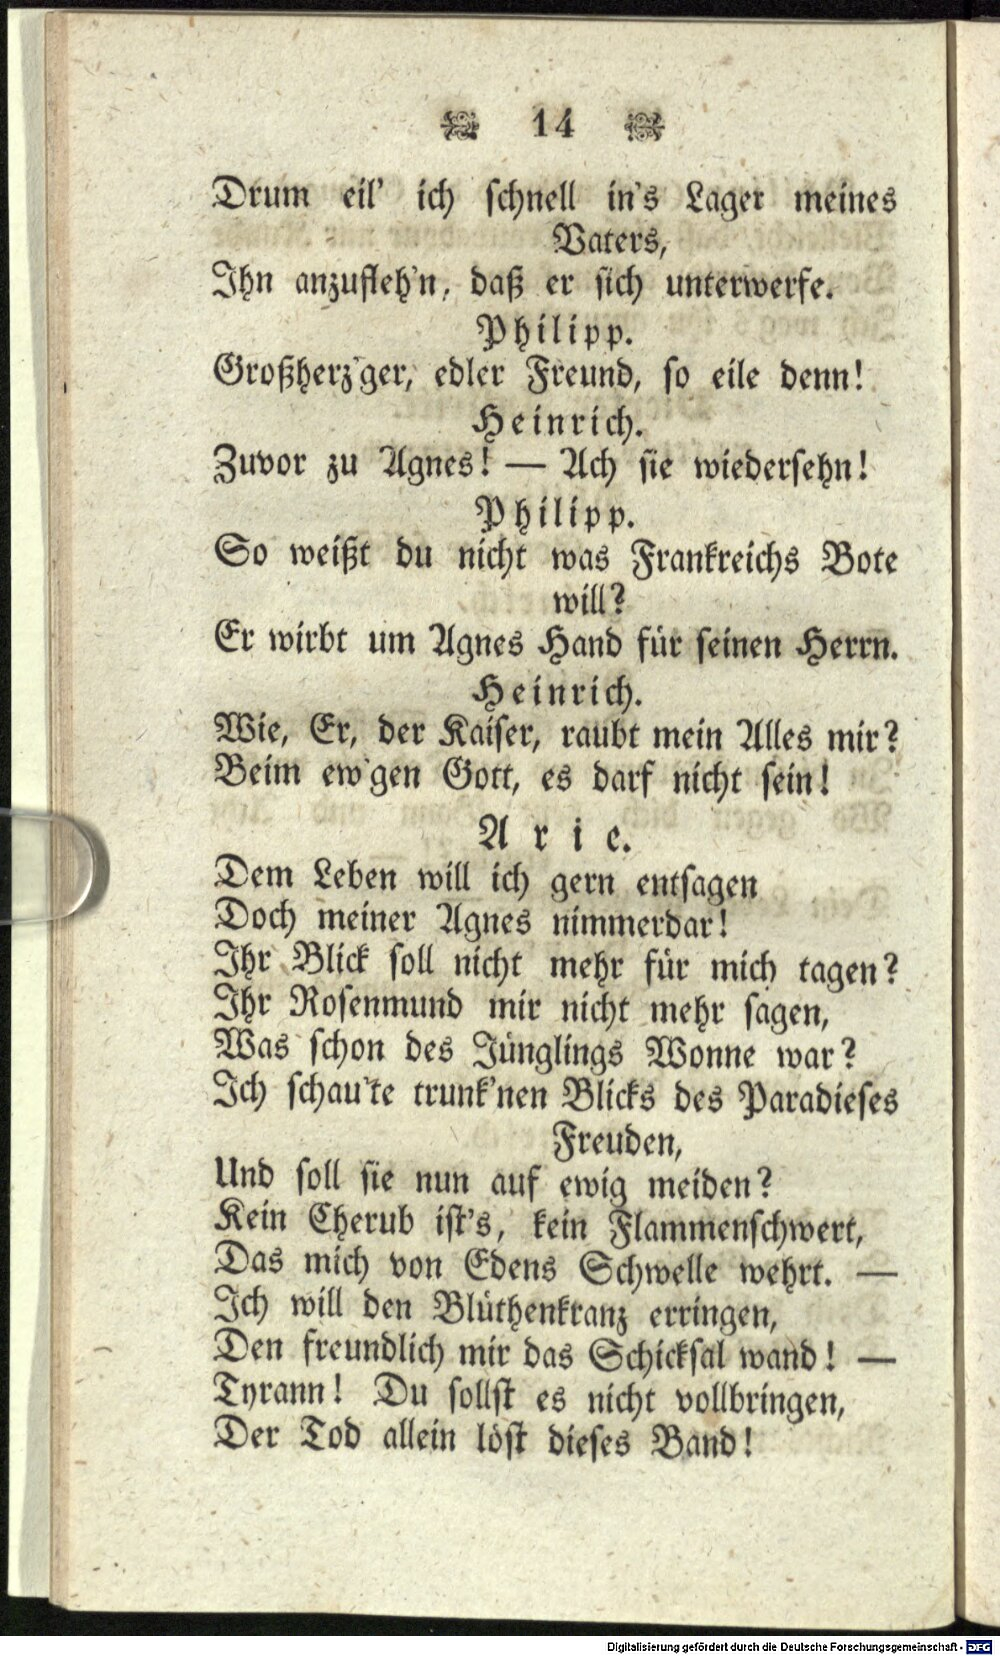 14
Drum eil' ich schnell in's Lager meines
Vaters,
Ihn anzufleh'n, daß er sich unterwerfe.
Philipp.
Großherz'ger, edler Freund, so eile denn!
Heinrich.
Zuvor zu Agnes! — Ach sie wiedersehn!
Philipp.
So weißt du nicht was Frankreichs Bote
will?
Er wirbt um Agnes Hand für seinen Herrn.
Heinrich.
Wie, Er, der Kaiser, raubt mein Alles mir?
Beim ew'gen Gott, es darf nicht sein!
Arie.
Dem Leben will ich gern entsagen
Doch meiner Agnes nimmerdar!
Ihr Blick soll nicht mehr für mich tagen?
Ihr Rosenmund mir nicht mehr sagen,
Was schon des Jünglings Wonne war?
Ich schau'te trunk'nen Blicks des Paradieses
Freuden,
Und soll sie nun auf ewig meiden?
Kein Cherub ist's, kein Flammenschwert,
Das mich von Edens Schwelle wehrt. —
Ich will den Blüthenkranz erringen,
Den freundlich mir das Schicksal wand! —
Tyrann! Du sollst es nicht vollbringen,
Der Tod allein löst dieses Band!
Digitalisierung gefördert durch die Deutsche Forschungsgemeinschaft - DFG